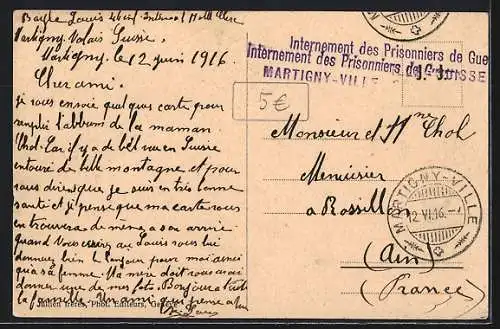 Bayle Louis interné Hotel Clerc
Martigny Valais Suisse.
Martigny. le 12 juin 1916.
Cher ami.
je vous envoie quelques cartes pour
remplir l'abbum de la maman
Thol. Car il y a de bel vue en Suisse
entouré de belle montagne et pour
vous dire que je suis en très bonne
santé et je pense que ma carte vous
en trouvera de même a son arrivée
Quand vous écrirez au Louis vous lui
donnerez bien le bonjour pour moi ainsi
qu'à sa femme. Ma mère doit vous avoir
donner une de mes foto. Bonjour a toute
la famille. Un ami qui pense a vous
Jullien frères, Phot. Editeurs, Genève
Internement des Prisonniers de Gue
Internement des Prisonniers de Guerre
MARTIGNY-VILLE SUISSE
5€
Monsieur et Mme Thol
Menuisier
a Rossillon
(Ain)
(France)
MARTIGNY-VILLE
12.VI.16.